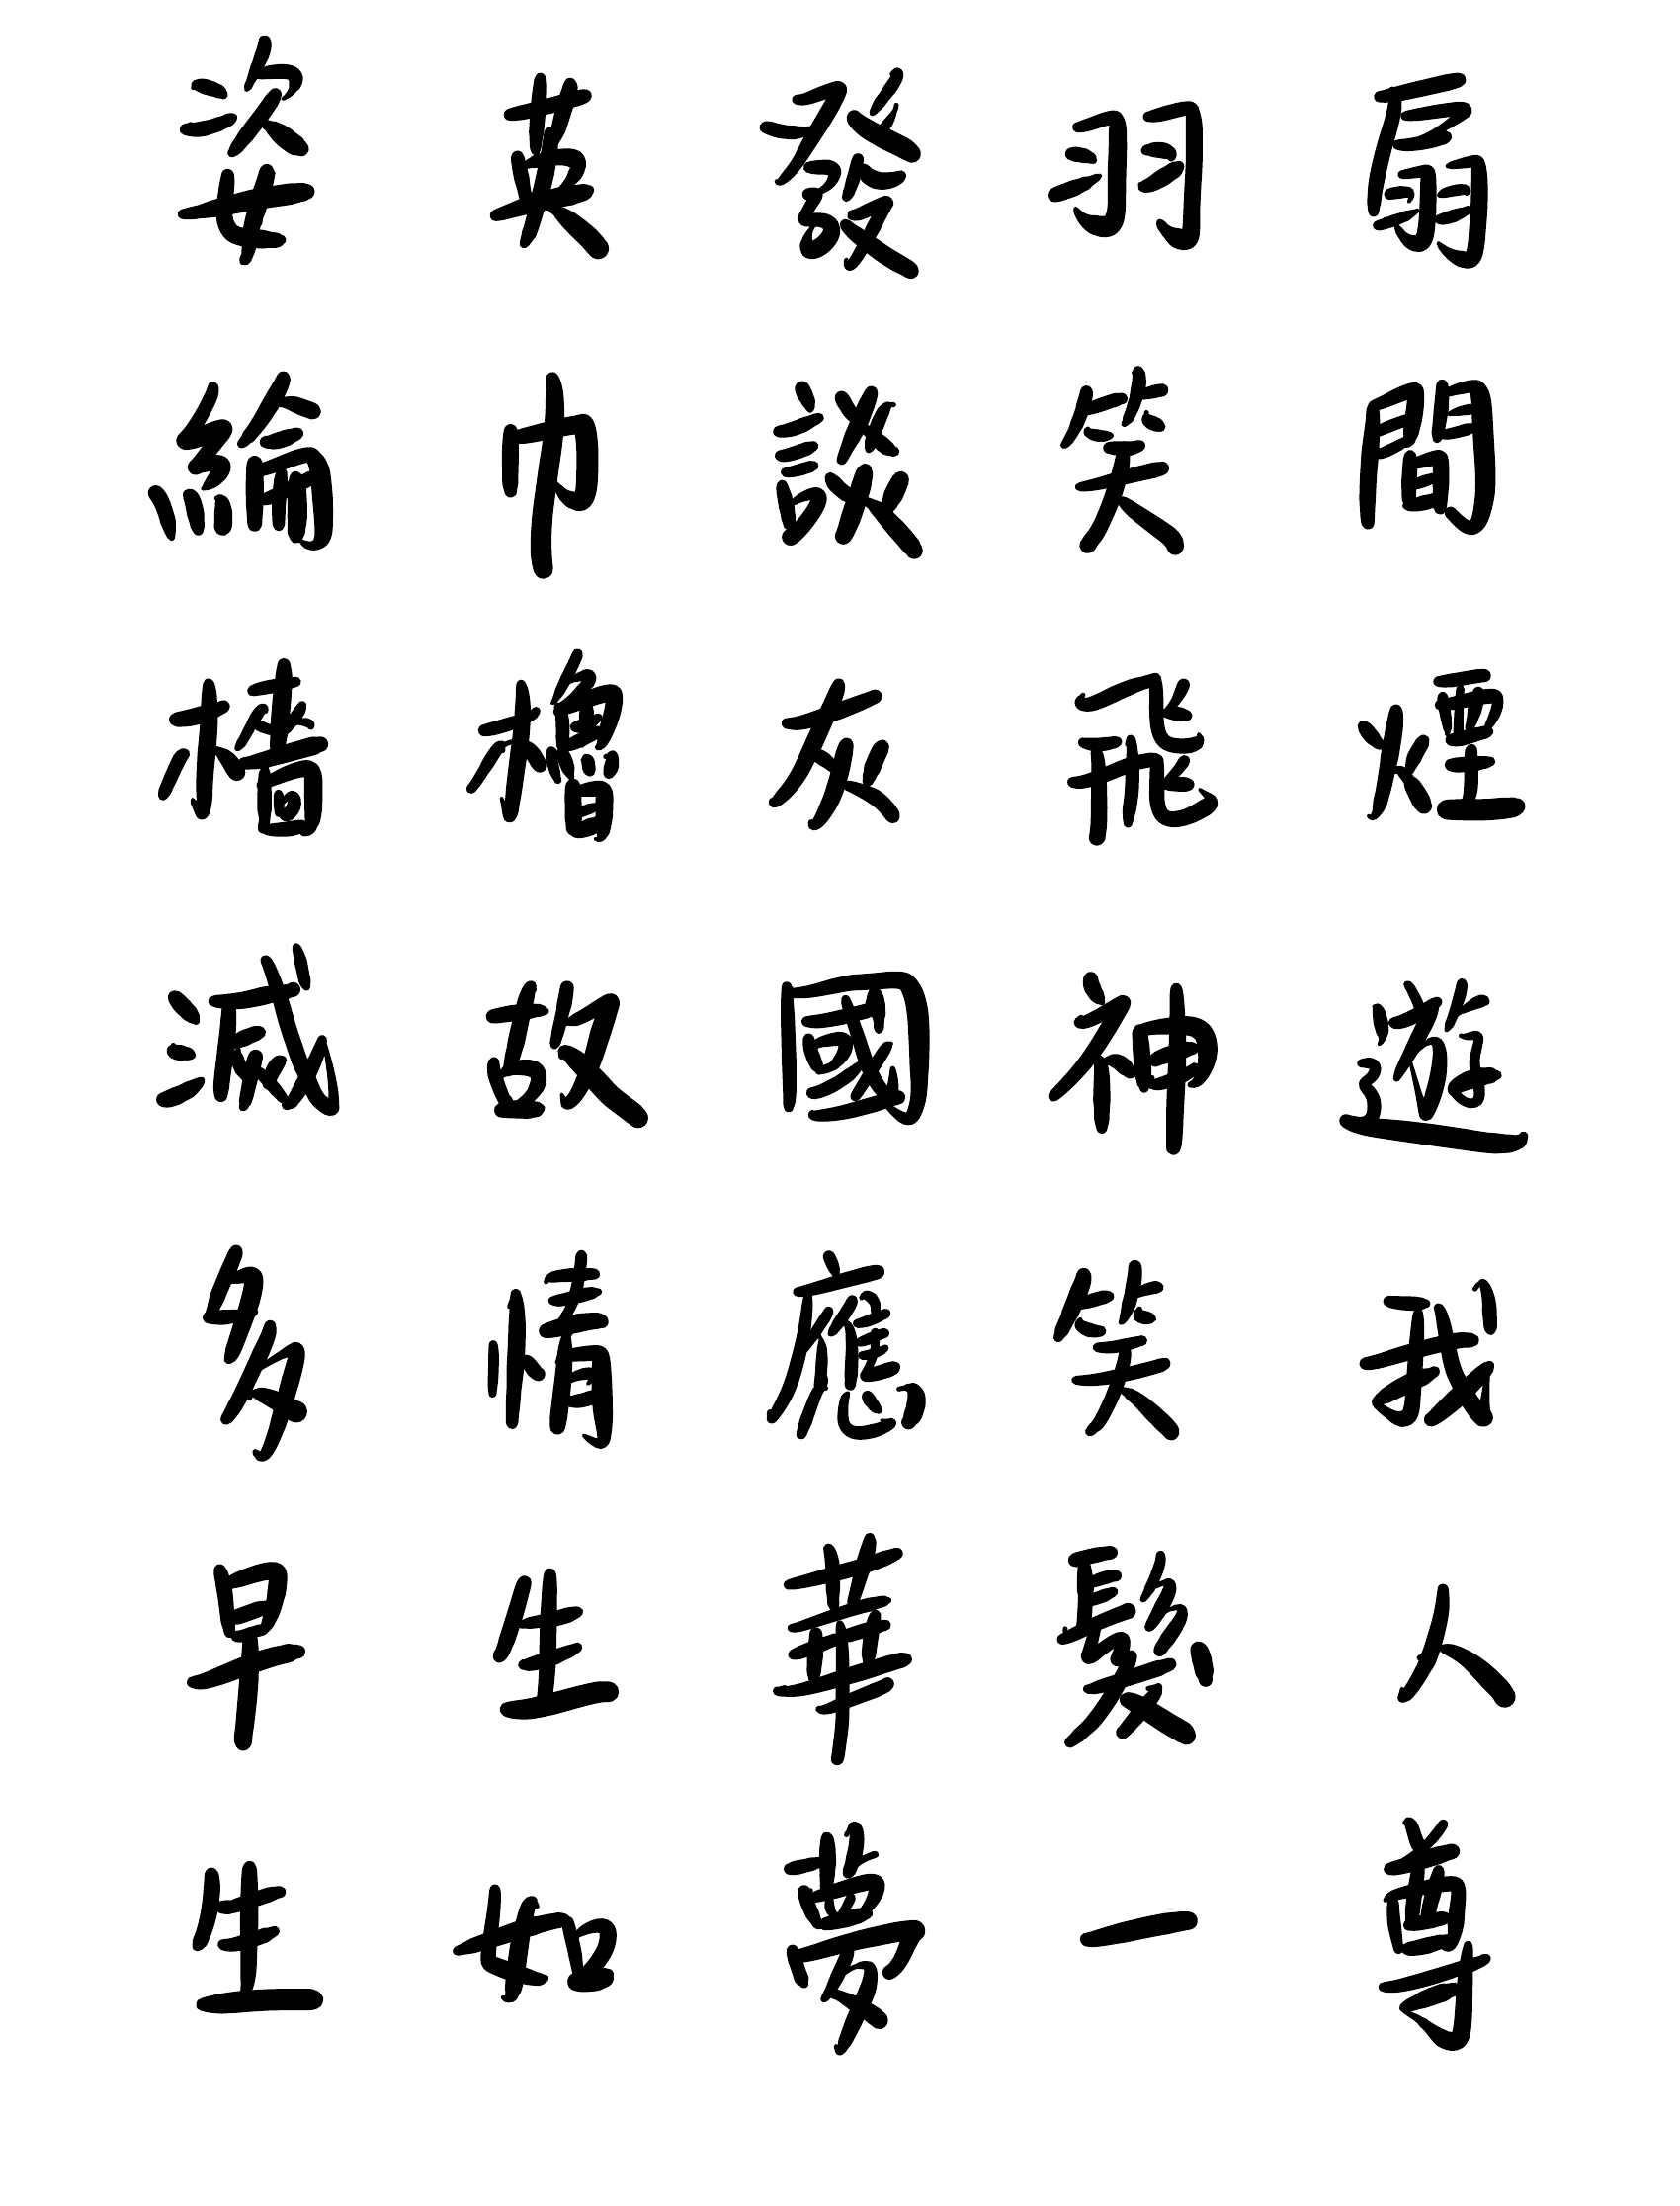 姿英發羽扇
綸巾談笑間
檣櫓灰飛煙
滅故國神遊
多情應笑我
早生華髮人
生如夢一尊